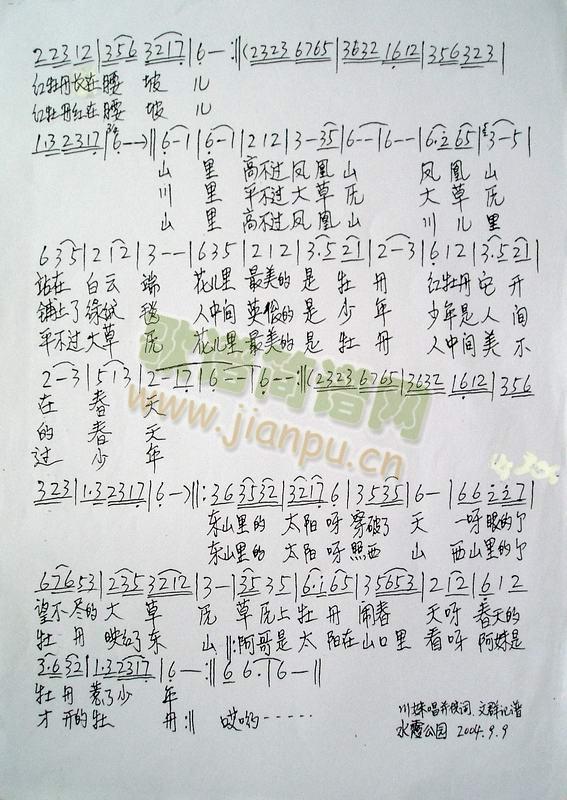 2 2 3 1 2 | 3 5 6 3 2 1 7 | 6 — :‖ (2 3 2 3 6 7 6 5 | 3 6 3 2 1 6 1 2 | 3 5 6 3 2 3 |
红牡丹长在腰 坡 儿
红牡丹红在腰 坡 儿
1· 3 2 3 1 7 | 6 — —) ‖ 6 — 1 | 6 — 1 | 2 1 2 | 3 — 3 5 | 6 — — | 6 — — | 6· 2 6 5 | 3 — 5 |
山 里 高不过凤凰山 凤凰山
川 里 平不过大草原 大草原
山 里 高不过凤凰山 川儿里
6 3 5 | 2 1 2 | 3 — — | 6 3 5 | 2 1 2 | 3· 5 2 1 | 2 — 3 | 6 1 2 | 3· 5 2 1 |
站在 白云 端 花儿里 最美的 是 牡 丹 红牡丹它 开
铺上了绿绒 毯 人中间 英俊的 是 少 年 少年是人 间
平不过大草 原 花儿里 最美的 是 牡 丹 人中间美 不
2 — 3 | 5 1 3 | 2 — 1 7 | 6 — — | 6 — — :‖ (2 3 2 3 6 7 6 5 | 3 6 3 2 1 6 1 2 | 3 5 6
在 春 天
的 春 天
过 少 年
歌谱简谱网
www.jianpu.cn
3 2 3 | 1· 3 2 3 1 7 | 6 —) ‖: 3 6 3 5 3 2 | 3 2 1 7 6 | 3 5 3 5 | 6 — | 6 6 2 2 7 |
东山里的 太阳呀 穿破了 天 一呀眼的个
东山里的 太阳呀 照西 山 西山里的个
6 7 6 5 3 | 2 3 5 3 2 1 2 | 3 — | 3 5 3 5 | 6· 1 6 5 | 3 5 6 5 3 | 2 1 2 | 6 1 2
望不尽的 大 草 原 草原上 牡 丹 闹春 天呀 春天的
牡 丹 映红了东 山 ‖: 阿哥是 太 阳在山口里 看呀 阿妹是
3· 6 3 2 | 1· 3 2 3 1 7 | 6 — :‖ 6 6· | 6 — ‖
牡丹 惹了少 年
才 开的牡 丹 :‖ 哎哟……
川妹唱并供词、文群记谱
水电公园 2004.9.9